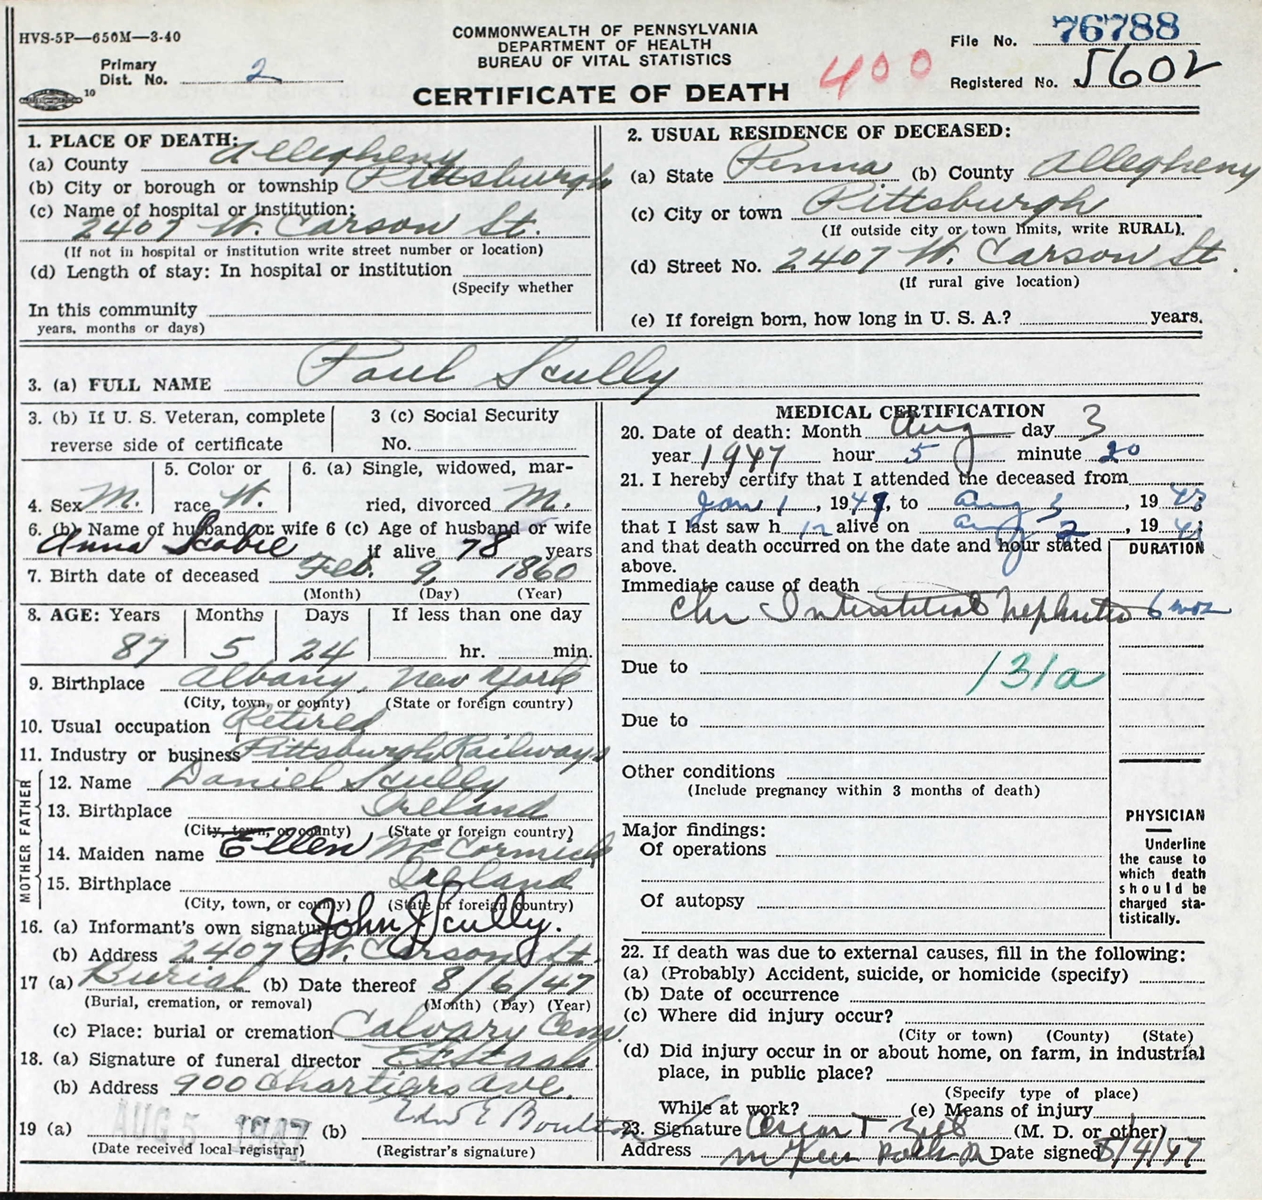 HVS-5P—650M—3-40
COMMONWEALTH OF PENNSYLVANIA
DEPARTMENT OF HEALTH
BUREAU OF VITAL STATISTICS
CERTIFICATE OF DEATH
Primary
Dist. No. 2
10
400
File No. 76788
Registered No. 5602
1. PLACE OF DEATH:
(a) County Allegheny
(b) City or borough or township Pittsburgh
(c) Name of hospital or institution:
2407 W. Carson St.
(If not in hospital or institution write street number or location)
(d) Length of stay: In hospital or institution
(Specify whether
In this community
years, months or days)
2. USUAL RESIDENCE OF DECEASED:
(a) State Penna (b) County Allegheny
(c) City or town Pittsburgh
(If outside city or town limits, write RURAL).
(d) Street No. 2407 W. Carson St.
(If rural give location)
(e) If foreign born, how long in U. S. A.? years.
3. (a) FULL NAME Paul Scully
3. (b) If U. S. Veteran, complete
reverse side of certificate
3 (c) Social Security
No.
4. Sex M.
5. Color or
race W.
6. (a) Single, widowed, mar-
ried, divorced M.
6. (b) Name of husband or wife 6 (c) Age of husband or wife
Anna Scabie if alive 78 years
7. Birth date of deceased Feb. 9, 1860
(Month) (Day) (Year)
8. AGE: Years Months Days If less than one day
87 5 24 hr. min.
9. Birthplace Albany, New York
(City, town, or county) (State or foreign country)
10. Usual occupation Retired
11. Industry or business Pittsburgh Railways
FATHER
12. Name Daniel Scully
13. Birthplace Ireland
(City, town, or county) (State or foreign country)
MOTHER
14. Maiden name Ellen McCormick
15. Birthplace Ireland
(City, town, or county) (State or foreign country)
16. (a) Informant's own signature John J Scully.
(b) Address 2407 W. Carson St.
17 (a) Burial (b) Date thereof 8/6/47
(Burial, cremation, or removal) (Month) (Day) (Year)
(c) Place: burial or cremation Calvary Cem.
18. (a) Signature of funeral director
(b) Address 900 Chartiers Ave.
19 (a) AUG 5 1947 (b) Edw E Boulton
(Date received local registrar) (Registrar's signature)
MEDICAL CERTIFICATION
20. Date of death: Month Aug day 3
year 1947 hour 5 minute 20
21. I hereby certify that I attended the deceased from
Jan 1, 1947, to Aug 3, 19
that I last saw h alive on Aug 2, 19
and that death occurred on the date and hour stated
above.
DURATION
Immediate cause of death
Chr Interstitial Nephritis 6 mos
Due to 131a
Due to
Other conditions
(Include pregnancy within 3 months of death)
Major findings:
Of operations
Of autopsy
PHYSICIAN
Underline
the cause to
which death
should be
charged sta-
tistically.
22. If death was due to external causes, fill in the following:
(a) (Probably) Accident, suicide, or homicide (specify)
(b) Date of occurrence
(c) Where did injury occur?
(City or town) (County) (State)
(d) Did injury occur in or about home, on farm, in industrial
place, in public place?
(Specify type of place)
While at work? (e) Means of injury
23. Signature (M. D. or other)
Address Date signed 8/4/47